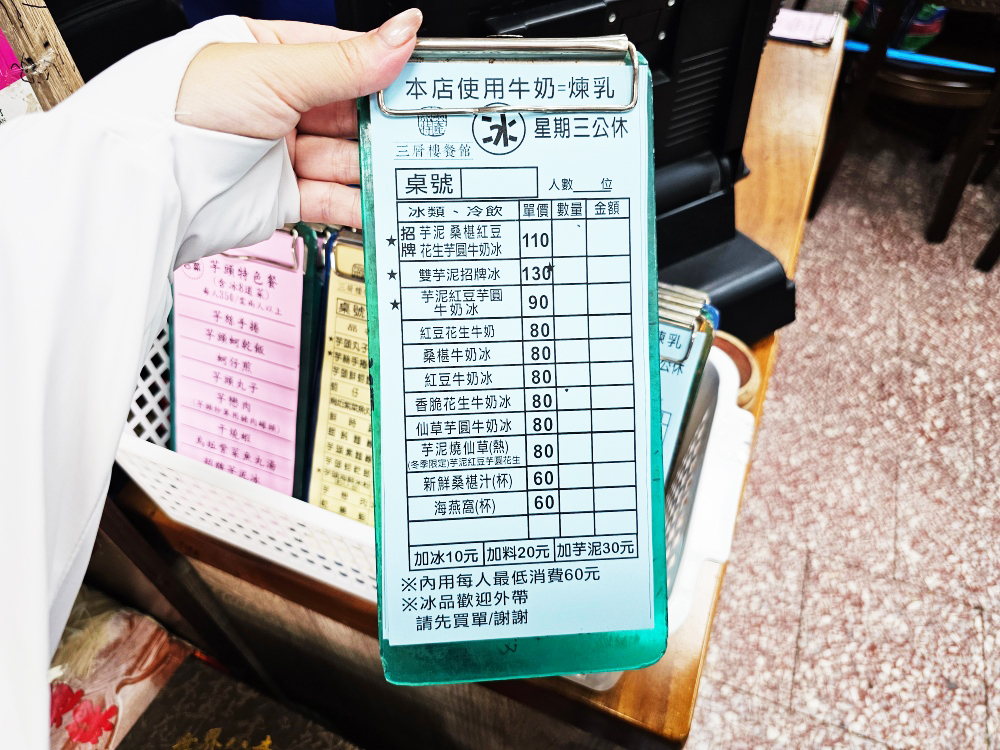 本店使用牛奶=煉乳
冰 星期三公休
三層樓餐館
桌號 人數 位
冰類、冷飲 單價 數量 金額
★招牌 芋泥 桑椹紅豆
花生芋圓牛奶冰 110
★ 雙芋泥招牌冰 130
★ 芋泥紅豆芋圓
牛奶冰 90
紅豆花生牛奶 80
桑椹牛奶冰 80
紅豆牛奶冰 80
香脆花生牛奶冰 80
仙草芋圓牛奶冰 80
芋泥燒仙草(熱) 80
(冬季限定)芋泥紅豆芋圓花生
新鮮桑椹汁(杯) 60
海燕窩(杯) 60
加冰10元 加料20元 加芋泥30元
※內用每人最低消費60元
※冰品歡迎外帶
請先買單/謝謝
芋頭特色餐
芋頭手捲
芋頭蚵乾飯
蚵仔煎
芋頭丸子
芋戀肉
干燒蝦
桌號
煉乳
公休